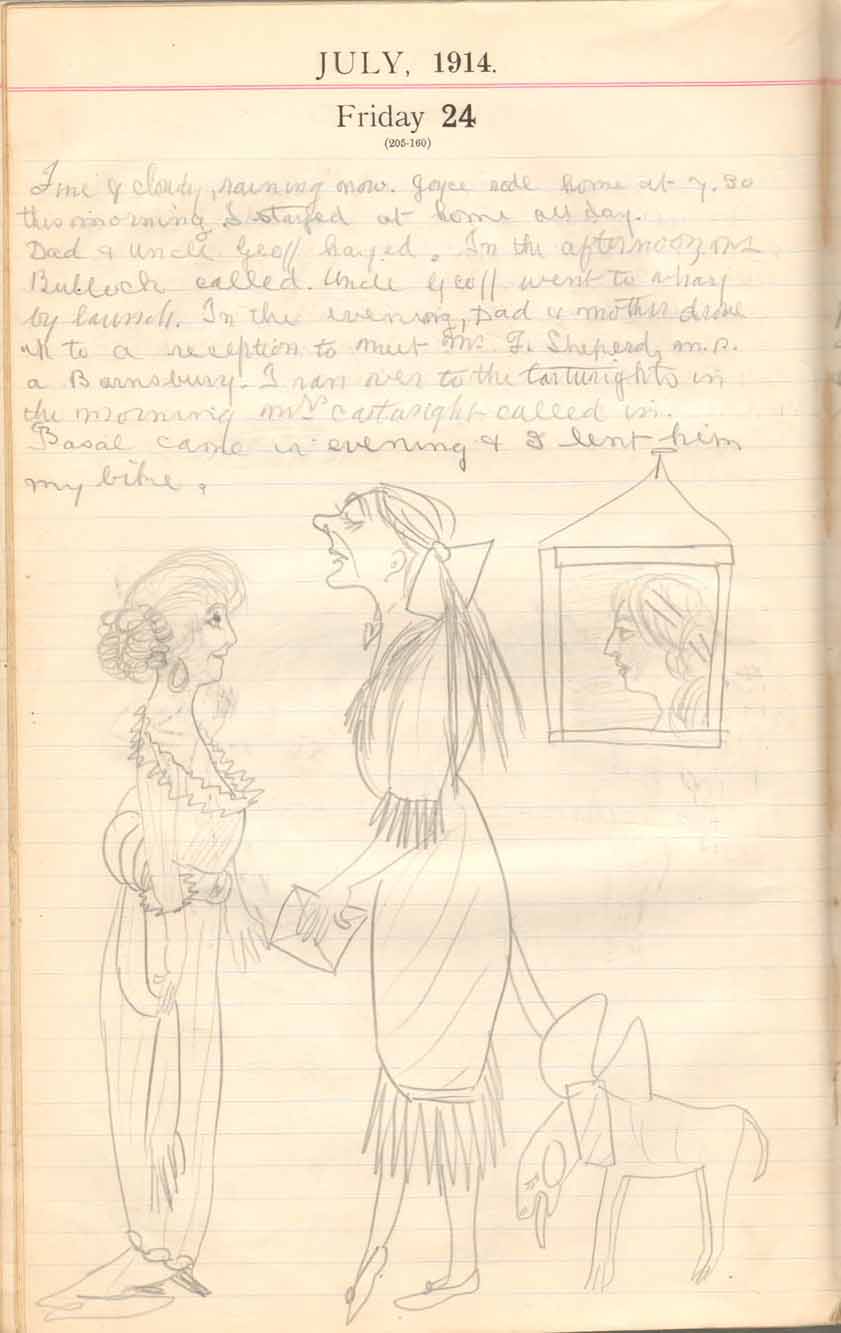 JULY, 1914.
Friday 24
(205-160)
Fine & cloudy, raining now. Joyce rode home at 7.30
this morning I stayed at home all day.
Dad & Uncle Geoff hayed. In the afternoon
Bullock called. Uncle Geoff went to
by launch. In the evening, Dad & mother drove
to a reception to meet Mr F. Sheperd, M.P.
a Barnsbury. I ran over to the Cartwrights in
the morning Mrs Cartwright called in.
Basil came in evening & I lent him
my bike.